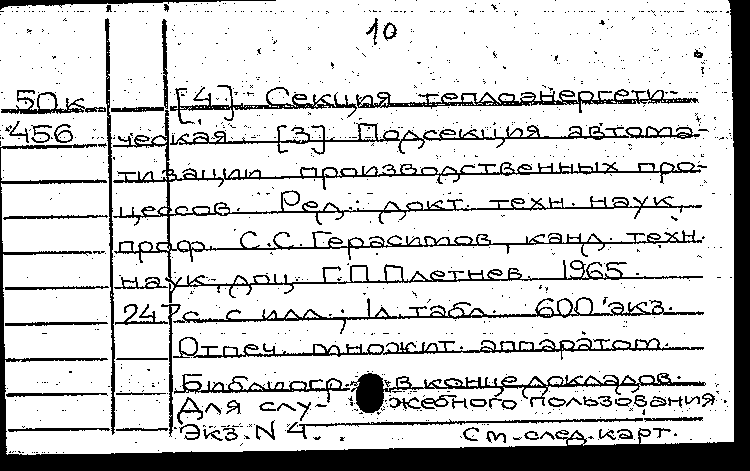 10
50к [4] Секция теплоэнергети-
456 ческая. [3] Подсекция автома-
тизации производственных про-
цессов. Ред.: докт. техн. наук,
проф. С.С. Герасимов, канд. техн.
наук, доц. Г.П. Плетнев. 1965.
247с. с илл.; 1л. табл. 600 экз.
Отпеч. множит. аппаратом.
Библиогр. в конце докладов.
Для слу- жебного пользования.
Экз. N 4. См. след. карт.